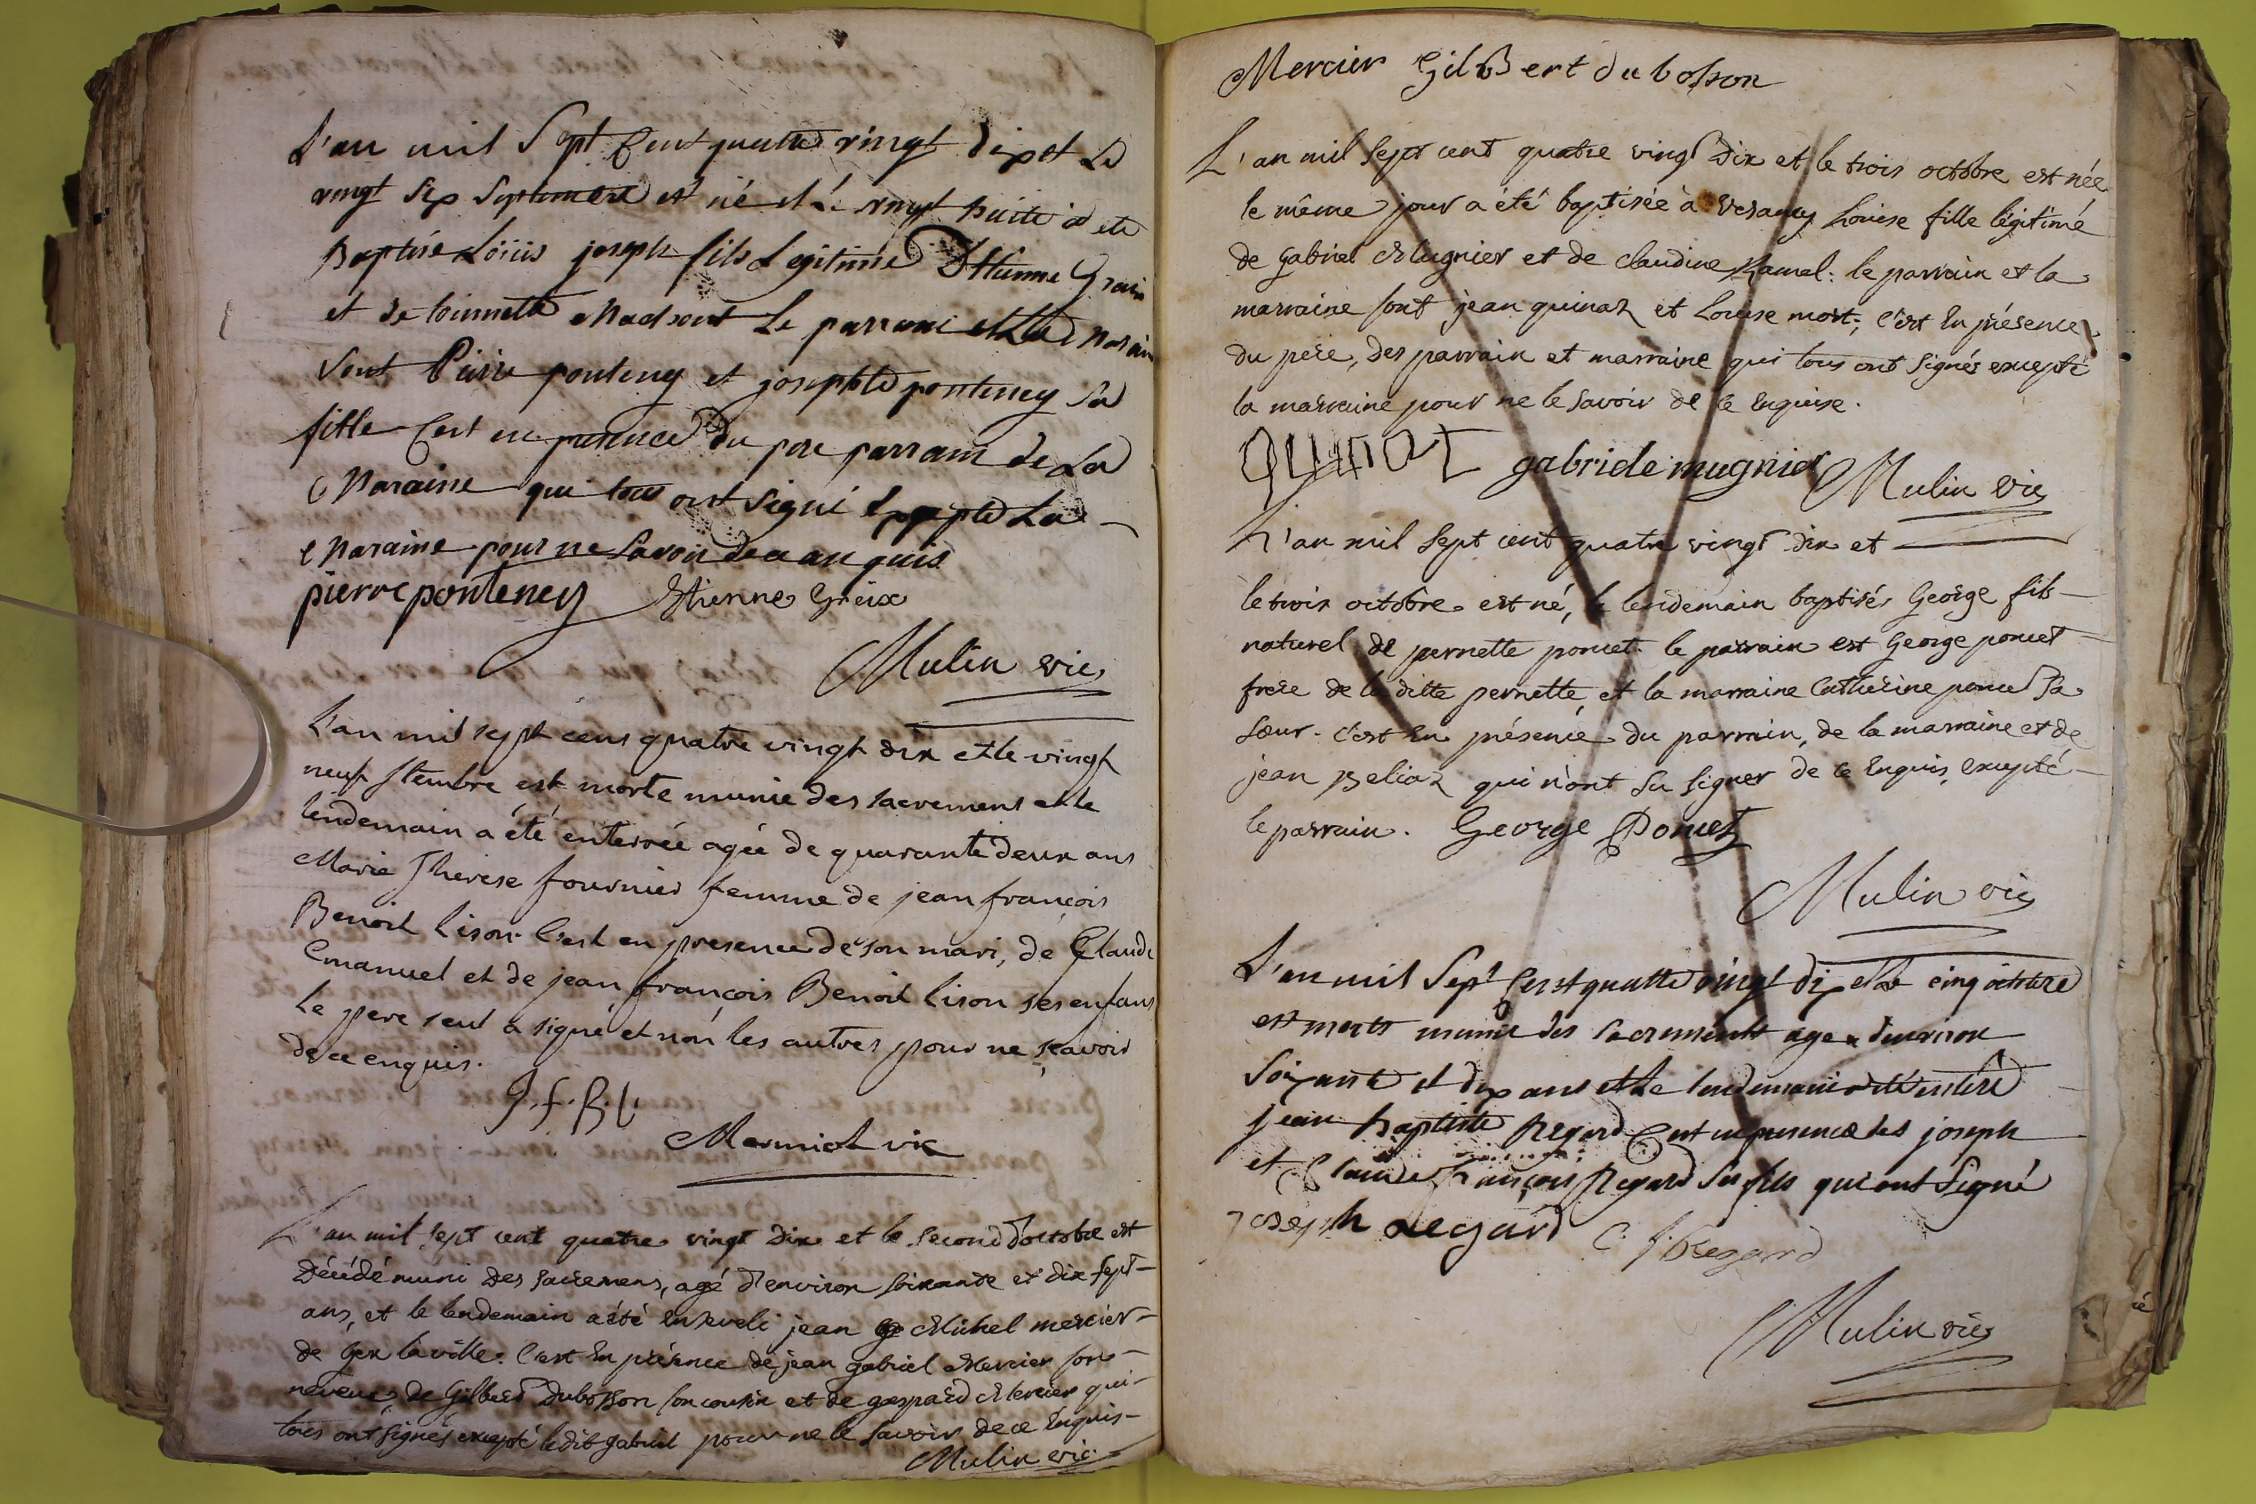 L'an mil Sept Cent quatre vingt dix et Le
vingt six Septembre est né et le vingt huite a ete
Baptisé Loüis joseph fils Legitime D'Etienne Groix
et de toinnette Machard Le parrain et La Maraine
sont Pierre ponteney et josephte ponteney Sa
fille Cest en presence du pere parrain de La
Maraine qui tous ont signé Exepté La
Maraine pour ne Savoir de ce anquis
pierre ponteney Etienne Greix
Mulin vic
L'an mil sept cens quatre vingt dix et le vingt
neuf stembre est morte munie des sacremens et le
lendemain a été enterrée agée de quarante deux ans
Marie Therese fournier femme de jean françois
Benoit Lison. C'est en presence de son mari, de Claude
Emanuel et de jean françois Benoit Lison ses enfans
Le pere seul a signé et non les autres pour ne sçavoir
de ce enquis.
J. f. B. l.
Mermiot vic
L'an mil sept cent quatre vingt dix et le second d'octobre est
Décédé muni des sacremens, agé d'environ soixante et dix sept
ans, et le lendemain a été Enseveli jean Michel mercier
de Gex la ville. C'est En présence de jean gabriel Mercier son
neveu, de Gilbert Dubosson son cousin et de gaspard Mercier qui
tous ont signés excepté ledit gabriel pour ne le savoir de ce Enquis
Mulin vic.
Mercier Gilbert dubosson
L'an mil sept cent quatre vingt dix et le trois octobre est née
le même jour a été baptisée à Vesancy Louise fille légitime
de Gabriel Mugnier et de claudine Ramel. le parrain et la
marraine sont jean quinaz et Louise mort; C'est En présence
du pere, des parrain et marraine qui tous ont signés excepté
la marraine pour ne le savoir de ce Enquise.
QUINAZ gabriele mugnier Mulin vic
L'an mil sept cent quatre vingt dix et
le trois octobre est né, le lendemain baptisé, George fils
naturel de pernette poncet. le parrain est George poncet
frere de la ditte pernette, et la marraine Catherine poncet sa
sœur. C'est En présence du parrain, de la marraine et de
jean Beliaz qui n'ont su signer de ce Enquis, excepté
le parrain. George Poncet
Mulin vic
L'an mil Sept Cent quatte vingt dix et Le cinq octobre
est morts munie des sacrements age denviron
Soixante et dix ans et Le lendemain a été entéré
jean baptiste Regard Cest en presence des joseph
et Claude François Regard Ses fils qui ont Signé
joseph Regard C. f. Regard
Mulin vic